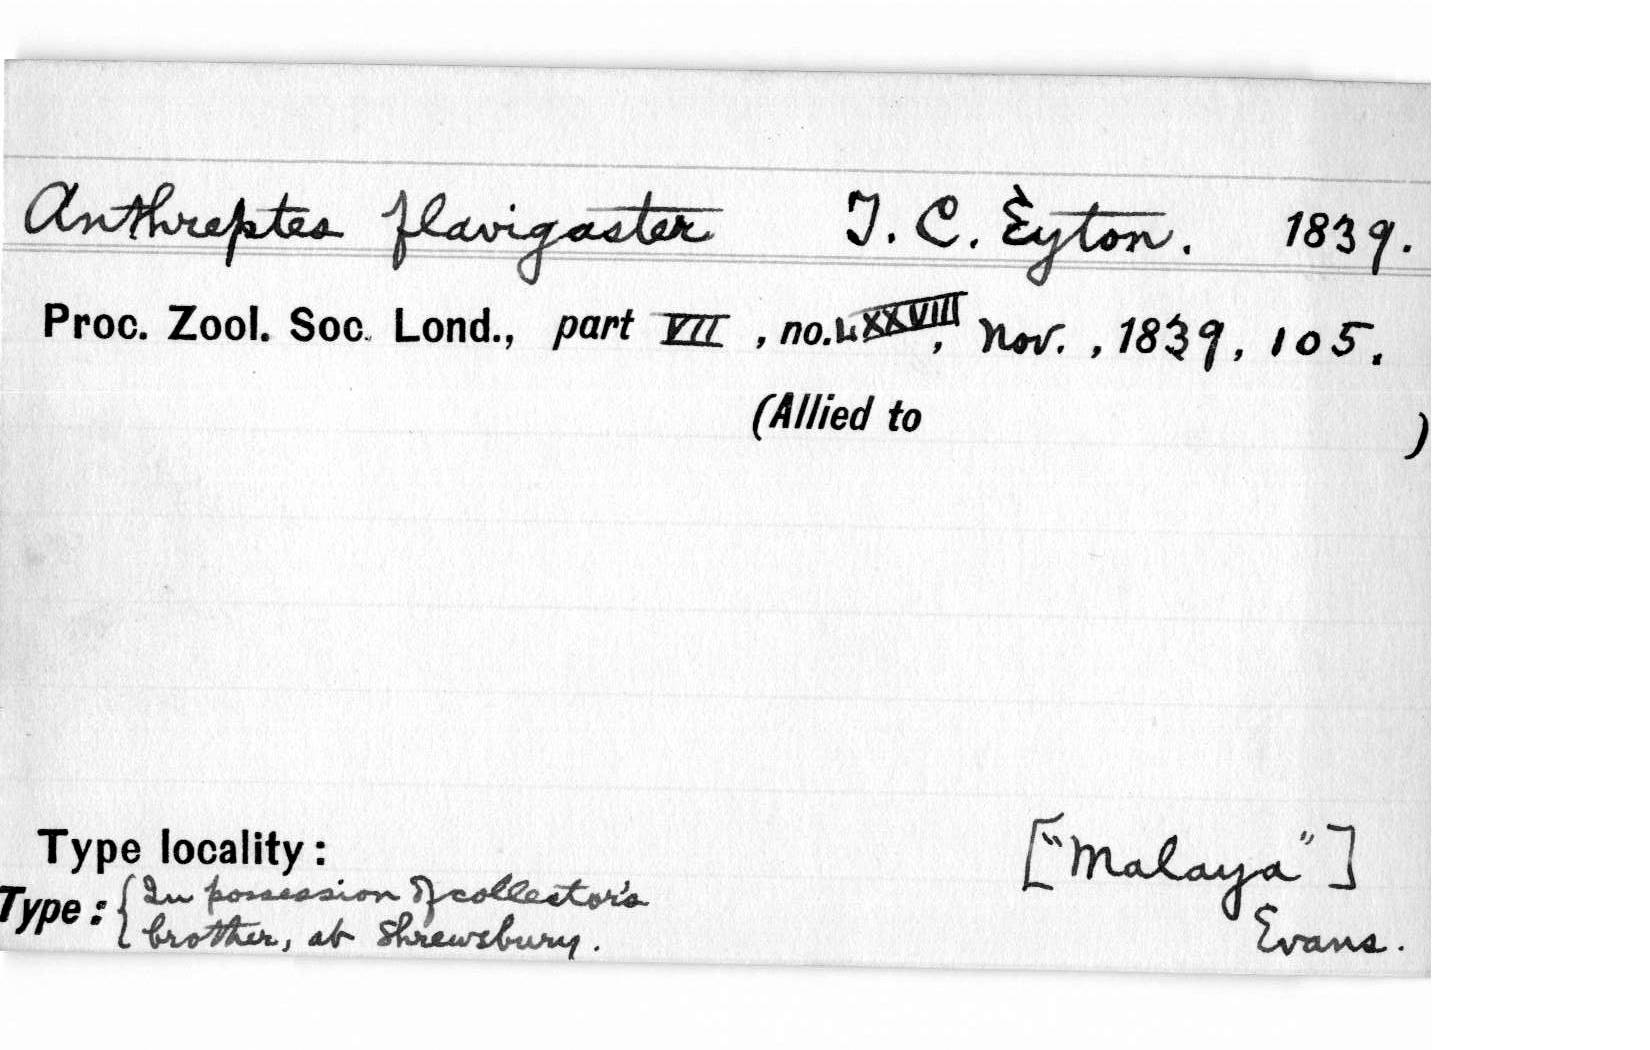 Anthreptes flavigaster T. C. Eyton. 1839.
Proc. Zool. Soc. Lond., part VII, no. LXXVIII, Nov., 1839, 105.
(Allied to )
Type locality: ["Malaya"]
Type: { In possession of collector's
brother, at Shrewsbury. Evans.